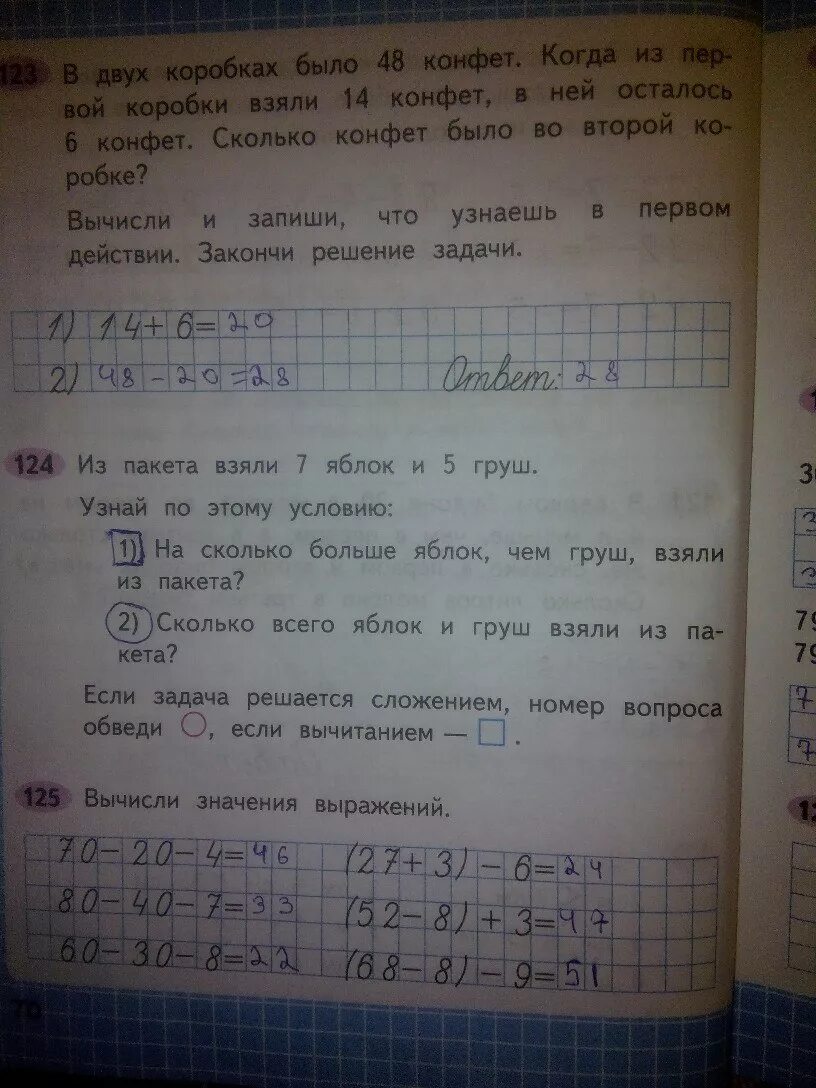 123 В двух коробках было 48 конфет. Когда из пер-
вой коробки взяли 14 конфет, в ней осталось
6 конфет. Сколько конфет было во второй ко-
робке?
Вычисли и запиши, что узнаешь в первом
действии. Закончи решение задачи.
1) 14+6=20
2) 48-20=28 Ответ: 28
124 Из пакета взяли 7 яблок и 5 груш.
Узнай по этому условию:
1) На сколько больше яблок, чем груш, взяли
из пакета?
2) Сколько всего яблок и груш взяли из па-
кета?
Если задача решается сложением, номер вопроса
обведи , если вычитанием — .
125 Вычисли значения выражений.
70-20-4=46 (27+3)-6=24
80-40-7=33 (52-8)+3=47
60-30-8=22 (68-8)-9=51
70
79
79